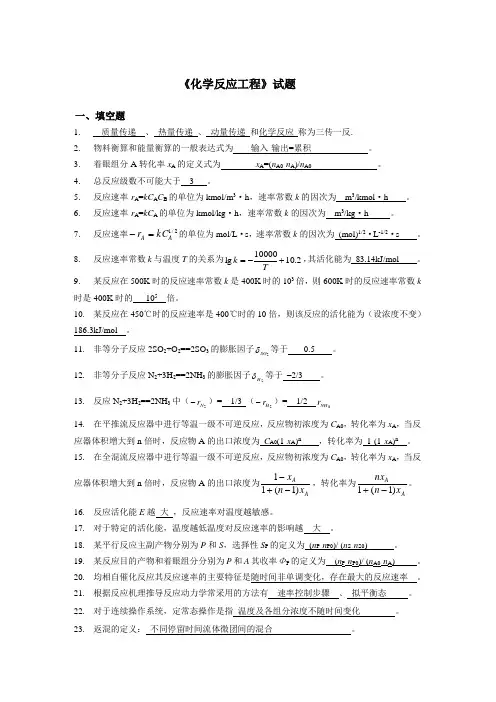 《化学反应工程》试题
一、填空题
1. 质量传递 、 热量传递 、 动量传递 和化学反应 称为三传一反.
2. 物料衡算和能量衡算的一般表达式为 输入-输出=累积 。
3. 着眼组分 A 转化率 xA 的定义式为 xA=(nA0-nA)/nA0 。
4. 总反应级数不可能大于 3 。
5. 反应速率-rA=kCACB 的单位为 kmol/m³·h，速率常数 k 的因次为 m³/kmol·h 。
6. 反应速率-rA=kCA 的单位为 kmol/kg·h，速率常数 k 的因次为 m³/kg·h 。
7. 反应速率 −rA = kCA^1/2 的单位为 mol/L·s，速率常数 k 的因次为 (mol)^1/2·L^-1/2·s 。
8. 反应速率常数 k 与温度 T 的关系为 lg k = −10000/T + 10.2，其活化能为 83.14kJ/mol 。
9. 某反应在 500K 时的反应速率常数 k 是 400K 时的 10³ 倍，则 600K 时的反应速率常数 k
时是 400K 时的 10⁵ 倍。
10. 某反应在 450℃时的反应速率是 400℃时的 10 倍，则该反应的活化能为（设浓度不变）
186.3kJ/mol 。
11. 非等分子反应 2SO2+O2==2SO3 的膨胀因子 δSO2 等于 0.5 。
12. 非等分子反应 N2+3H2==2NH3 的膨胀因子 δH2 等于 –2/3 。
13. 反应 N2+3H2==2NH3 中（−rN2）= 1/3 （−rH2）= 1/2 rNH3
14. 在平推流反应器中进行等温一级不可逆反应，反应物初浓度为 CA0，转化率为 xA，当反
应器体积增大到 n 倍时，反应物 A 的出口浓度为 CA0(1-xA)ⁿ ，转化率为 1-(1-xA)ⁿ 。
15. 在全混流反应器中进行等温一级不可逆反应，反应物初浓度为 CA0，转化率为 xA，当反
应器体积增大到 n 倍时，反应物 A 的出口浓度为 (1−xA)/(1+(n−1)xA)，转化率为 nxA/(1+(n−1)xA)。
16. 反应活化能 E 越 大 ，反应速率对温度越敏感。
17. 对于特定的活化能，温度越低温度对反应速率的影响越 大 。
18. 某平行反应主副产物分别为 P 和 S，选择性 SP 的定义为 (nP-nP0)/ (nS-nS0) 。
19. 某反应目的产物和着眼组分分别为 P 和 A 其收率 ΦP 的定义为 (nP-nP0)/ (nA0-nA) 。
20. 均相自催化反应其反应速率的主要特征是随时间非单调变化，存在最大的反应速率 。
21. 根据反应机理推导反应动力学常采用的方法有 速率控制步骤 、拟平衡态 。
22. 对于连续操作系统，定常态操作是指 温度及各组分浓度不随时间变化 。
23. 返混的定义： 不同停留时间流体微团间的混合 。